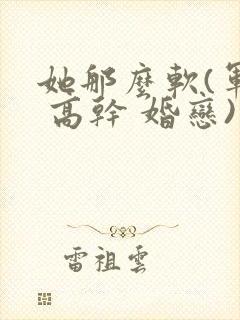 她那麼軟(軍
高幹 婚戀)
雷祖雲